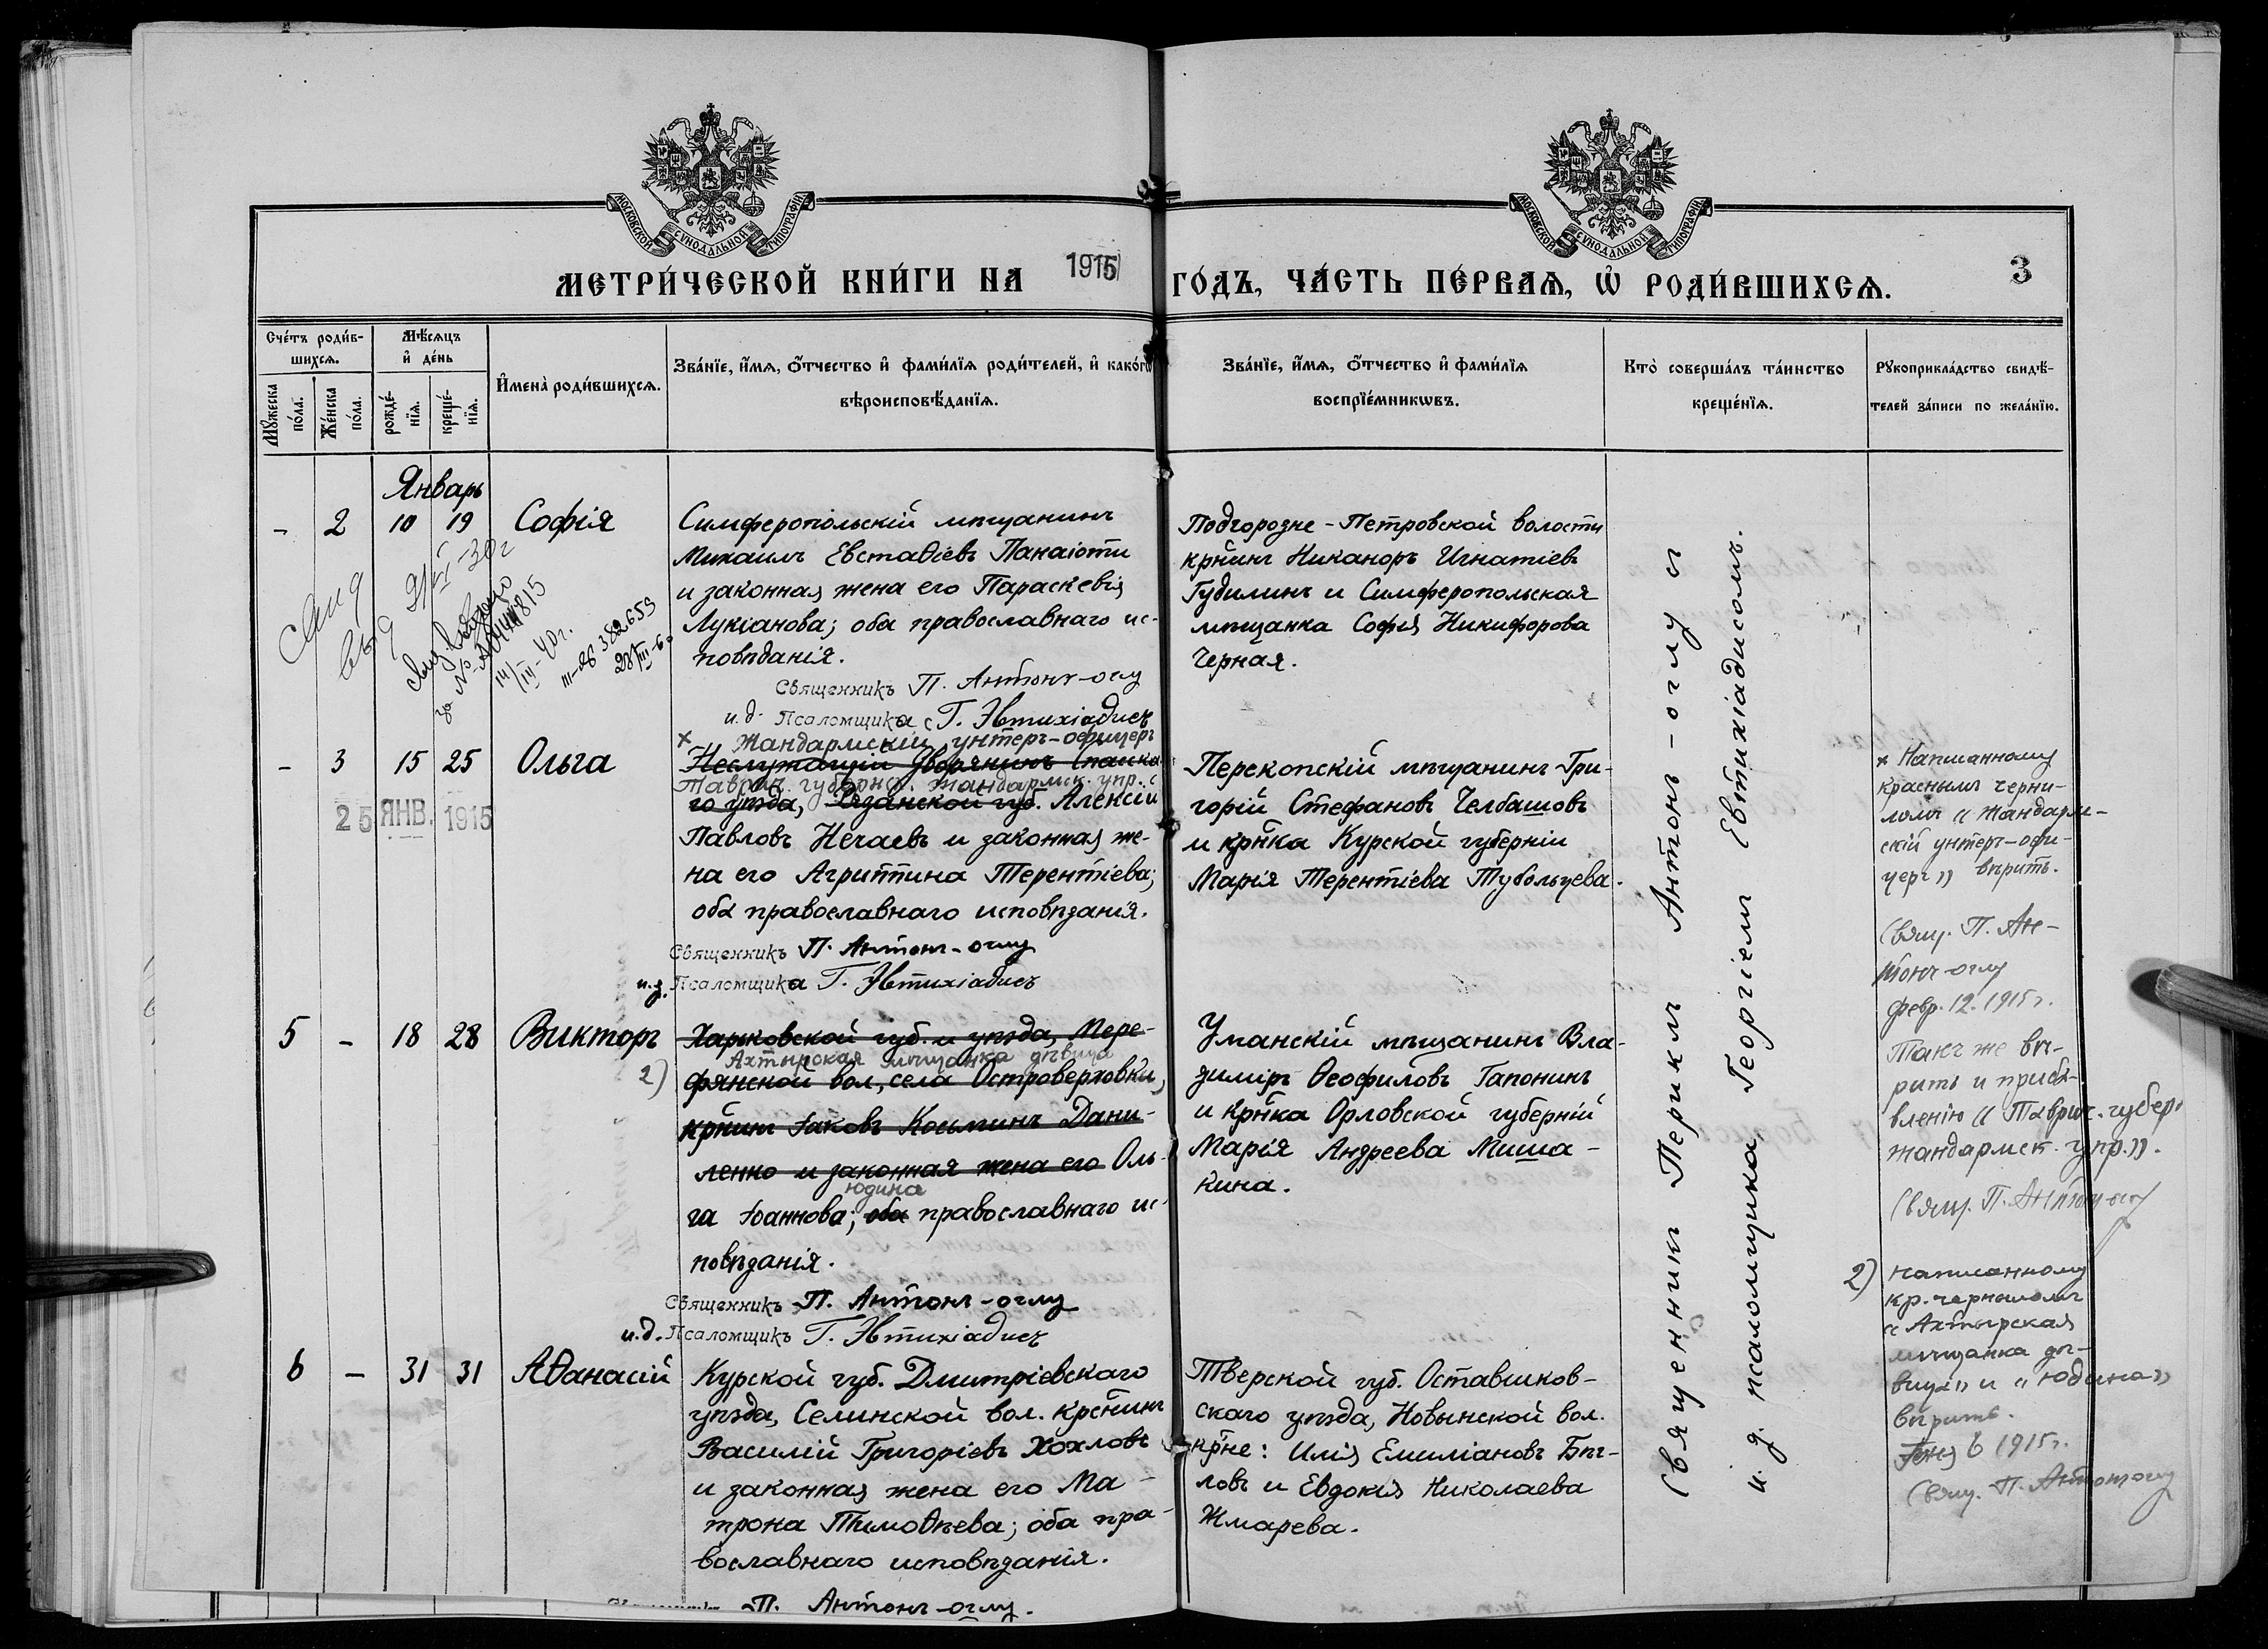 МОСКОВСКОЙ СѴНОДАЛЬНОЙ ТИПОГРАФІИ
МОСКОВСКОЙ СѴНОДАЛЬНОЙ ТИПОГРАФІИ
МЕТРИ́ЧЕСКОЙ КНИ́ГИ НА 1915 ГО́ДЪ, ЧА́СТЬ ПЕ́РВАѦ, Ѡ҆ РОДИ́ВШИХСѦ.
3
Сче́тъ роди́в-
шихсѧ.
Мꙋ́жеска
по́ла.
Же́нска
по́ла.
Мѣ́сѧцъ
и҆ де́нь
рожде́-
нїѧ.
креще́-
нїѧ.
И҆мена̀ роди́вшихсѧ.
Зва́нїе, и҆́мѧ, ѻ҆́тчество и҆ фами́лїѧ роди́телей, и҆ како́гѡ
вѣроисповѣ́данїѧ.
Зва́нїе, и҆́мѧ, ѻ҆́тчество и҆ фами́лїѧ
воспрїе́мникѡвъ.
Кто̀ соверша́лъ та́инство
креще́нїѧ.
Рꙋкоприкла́дство свидѣ́-
телей за́писи по жела́нїю.
Январь
- 2 10 19 Софія
Симферопольскій мѣщанинъ
Михаилъ Евстаѳіевъ Панаіоти
и законная жена его Параскевія
Лукіанова; оба православнаго ис-
повѣданія.
Священникъ П. Антонъ-оглу
и.д. Псаломщика Г. Эвтихіадисъ
Подгородне-Петровской волости
кр̃нинъ Никаноръ Игнатіевъ
Гудилинъ и Симферопольская
мѣщанка Софія Никифорова
Черная.
14/III-40г.
III-28 382659
- 3 15 25 Ольга
25 ЯНВ. 1915
× Жандармскій унтеръ-офицеръ
Неслужащій дворянинъ Спаска
Таврич. губернс. жандармск. упр.
го уѣзда, Рязанской губ. Алексій
Павловъ Нечаевъ и законная же-
на его Агриппина Терентіева;
оба православнаго исповѣданія.
Священникъ П. Антонъ-оглу
и.д. Псаломщика Г. Эвтихіадисъ
Перекопскій мѣщанинъ Гри-
горій Стефановъ Челбашовъ
и кр̃нка Курской губерніи
Марія Терентіева Тубольцева.
× Написанному
краснымъ черни-
ломъ "Жандарм-
скій унтеръ-офи-
церъ" вѣрить.
Свящ. П. Ан-
тонъ-оглу
февр. 12. 1915г.
Такъ же вѣ-
рить и приба-
вленію "Таврич. губер.
жандармск. упр.".
Свящ. П. Антонъ-оглу
5 - 18 28 Викторъ
Харьковской губ. и уѣзда, Мере-
2) Ахтырская мѣщанка дѣвица
фянской вол., села Островерховки,
кр̃нинъ Іаковъ Косьминъ Дани-
ленко и законная жена его Оль-
Юдина
га Іоаннова; оба православнаго ис-
повѣданія.
Священникъ П. Антонъ-оглу
и.д. Псаломщикъ Г. Эвтихіадисъ
Уманскій мѣщанинъ Вла-
диміръ Ѳеофиловъ Гапонинъ
и кр̃нка Орловской губерніи
Марія Андреева Миша-
кина.
2) Написанному
кр. черниломъ
"Ахтырская
мѣщанка дѣ-
вица" и "Юдина"
вѣрить.
6 1915г.
Свящ. П. Антонъ-оглу
6 - 31 31 Аѳанасій
Курской губ. Дмитріевскаго
уѣзда, Селинской вол. кр̃нинъ
Василій Григоріевъ Хохловъ
и законная жена его Ма-
трона Тимоѳѣева; оба пра-
вославнаго исповѣданія.
П. Антонъ-оглу.
Тверской губ. Осташков-
скаго уѣзда, Новинской вол.
кр̃не: Илія Емиліановъ Бѣ-
ловъ и Евдокія Николаева
Жмарева.
Священникъ Периклъ Антонъ-оглу съ
и. д. псаломщика Георгіемъ Евтихіадисомъ.